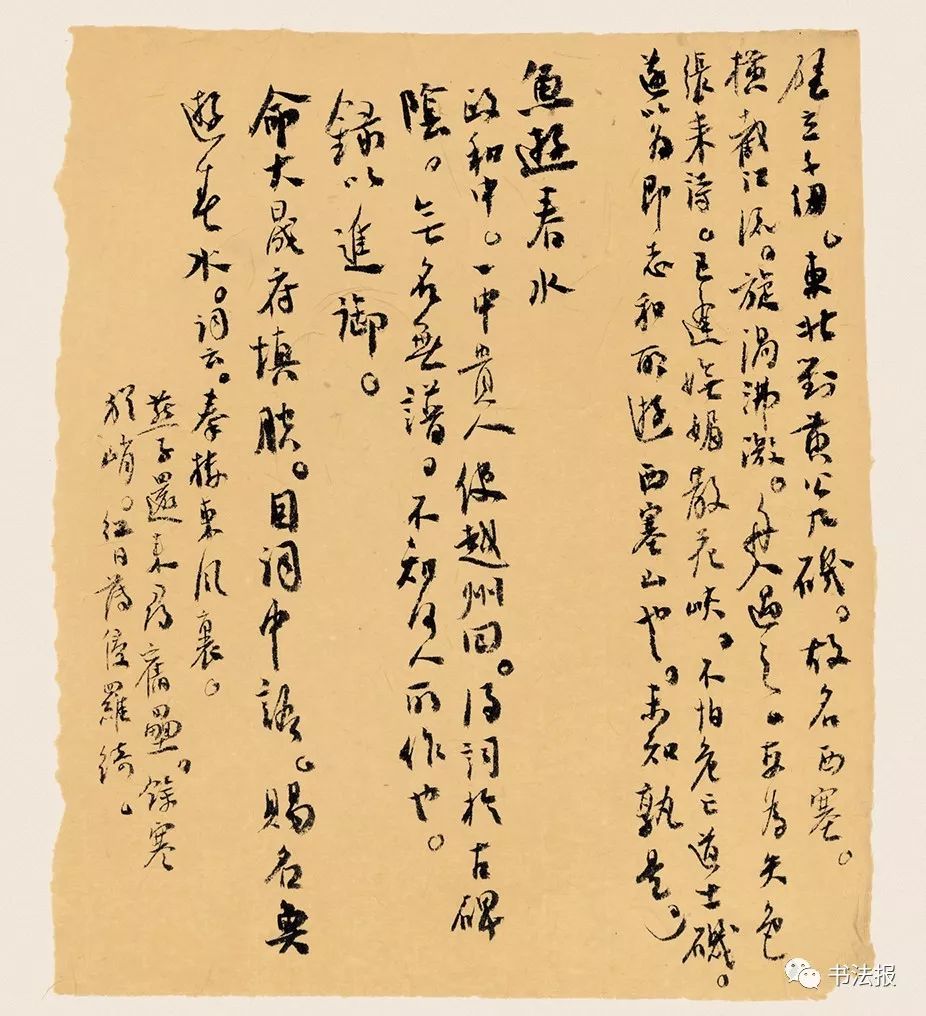 立千仞。東北對黃公九磯。故名西塞。
橫截江流。旋渦沸激。舟人過之。為失色
張耒詩。已逢嫵媚散花峽。不怕危亡道士磯。
遂以為即志和所遊西塞山也。未知孰是。
魚遊春水
政和中。一中貴人使越州回。得詞於古碑
陰。无名無譜。不知何人所作也。
録以進御。
命大晟府填腔。因詞中語。賜名魚
遊春水。詞云。秦樓東風裏。
燕子還來尋舊壘。餘寒
猶峭。紅日薄侵羅綺。
书法报